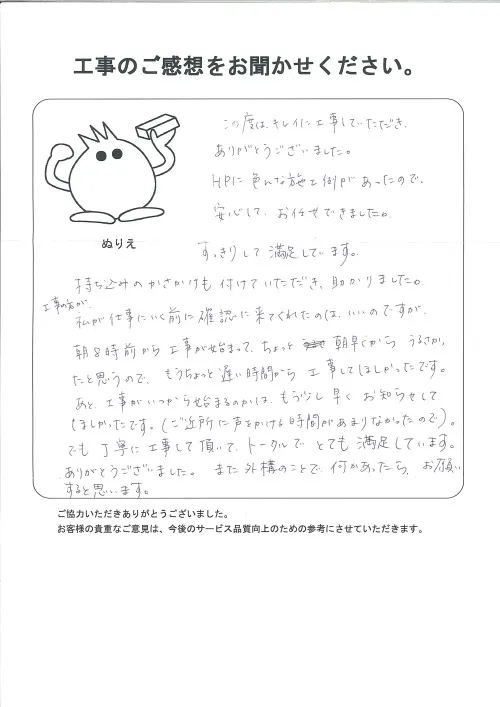 工事のご感想をお聞かせください。
この度は、キレイに工事していただき、
ありがとうございました。
HPに色んな施工例があったので、
安心して、お任せできました。
ぬりえ
すっきりして満足しています。
持ち込みのかさかけも付けていただき、助かりました。
工事の方が、
私が仕事にいく前に確認に来てくれたのは、いいのですが、
朝8時前から工事が始まって、ちょっと 朝早くから うるさかっ
たと思うので、もうちょっと遅い時間から 工事してほしかったです。
あと、工事がいつから始まるのかは、もう少し早く お知らせして
ほしかったです。(ご近所に声をかける時間があまりなかったので)。
でも丁寧に工事して頂いて、トータルで とても満足しています。
ありがとうございました。 また外構のことで、何かあったら、お願い
すると思います。
ご協力いただきありがとうございました。
お客様の貴重なご意見は、今後のサービス品質向上のための参考にさせていただきます。